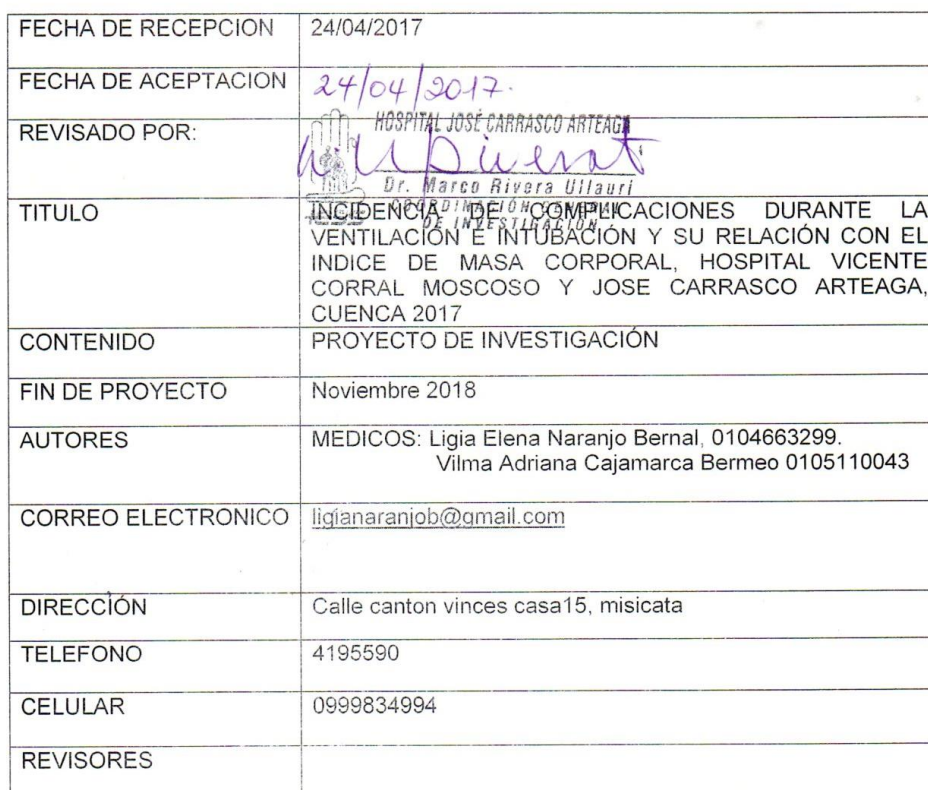 FECHA DE RECEPCION 24/04/2017
FECHA DE ACEPTACION 24/04/2017.
REVISADO POR: HOSPITAL JOSÉ CARRASCO ARTEAGA
Dr. Marco Rivera Ullauri
COORDINACIÓN GENERAL
DE INVESTIGACIÓN
TITULO INCIDENCIA DE COMPLICACIONES DURANTE LA
VENTILACIÓN E INTUBACIÓN Y SU RELACIÓN CON EL
INDICE DE MASA CORPORAL, HOSPITAL VICENTE
CORRAL MOSCOSO Y JOSE CARRASCO ARTEAGA,
CUENCA 2017
CONTENIDO PROYECTO DE INVESTIGACIÓN
FIN DE PROYECTO Noviembre 2018
AUTORES MEDICOS: Ligia Elena Naranjo Bernal, 0104663299.
Vilma Adriana Cajamarca Bermeo 0105110043
CORREO ELECTRONICO ligianaranjob@gmail.com
DIRECCIÓN Calle canton vinces casa15, misicata
TELEFONO 4195590
CELULAR 0999834994
REVISORES